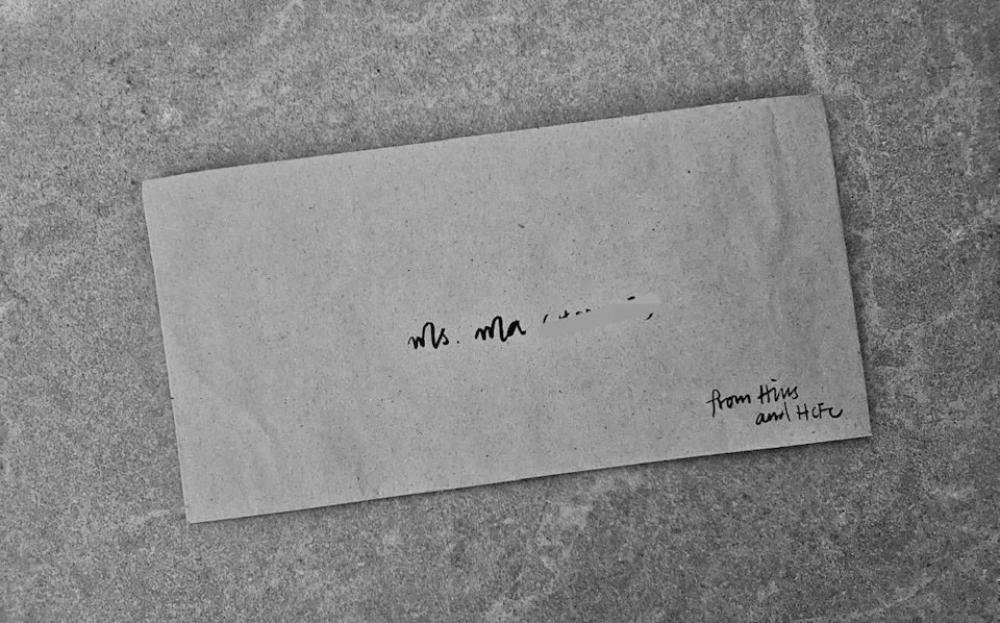 Ms. Ma
from Hins
and HCFC